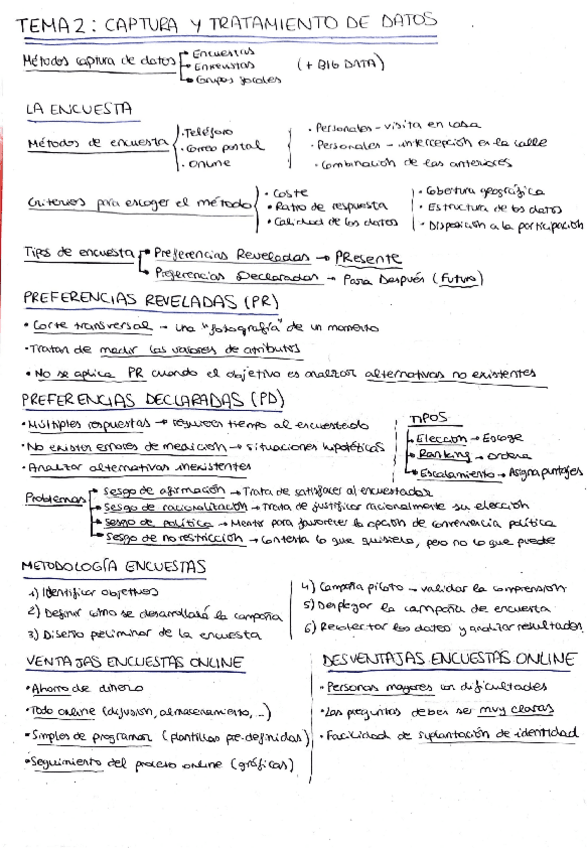 TEMA 2: CAPTURA Y TRATAMIENTO DE DATOS
Métodos captura de datos
• Encuestas
• Entrevistas
• Grupos focales
(+ BIG DATA)
LA ENCUESTA
Métodos de encuesta
• Teléfono
• Correo postal
• Online
• Personales - visita en casa
• Personales - intercepción en la calle
• Combinación de las anteriores
Criterios para escoger el método
• Coste
• Ratio de respuesta
• Calidad de los datos
• Cobertura geográfica
• Estructura de los datos
• Disposición a la participación
Tipos de encuesta
• Preferencias Reveladas → PResente
• Preferencias Declaradas → Para Después (Futuro)
PREFERENCIAS REVELADAS (PR)
• Corte transversal → una "fotografía" de un momento
• Tratan de medir los valores de atributos
• No se aplica PR cuando el objetivo es analizar alternativas no existentes
PREFERENCIAS DECLARADAS (PD)
• Múltiples respuestas → requieren tiempo al encuestado
• No existen errores de medición → situaciones hipotéticas
• Analizar alternativas inexistentes
TIPOS
Elección → Escoge
Ranking → ordena
Escalamiento → Asigna puntajes
Problemas
• Sesgo de afirmación → Trata de satisfacer al encuestador
• Sesgo de racionalización → Trata de justificar racionalmente su elección
• Sesgo de política → Mentir para favorecer la opción de conveniencia política
• Sesgo de no restricción → Contesta lo que quisiera, pero no lo que puede
METODOLOGÍA ENCUESTAS
1) Identificar objetivos
2) Definir cómo se desarrollará la campaña
3) Diseño preliminar de la encuesta
4) Campaña piloto → validar la comprensión
5) Desplegar la campaña de encuesta
6) Recolectar los datos y analizar resultados
VENTAJAS ENCUESTAS ONLINE
• Ahorro de dinero
• Todo online (difusión, almacenamiento, ...)
• Simples de programar (plantillas pre-definidas)
• Seguimiento del proceso online (gráficas)
DESVENTAJAS ENCUESTAS ONLINE
• Personas mayores con dificultades
• Las preguntas deben ser muy claras
• Facilidad de suplantación de identidad